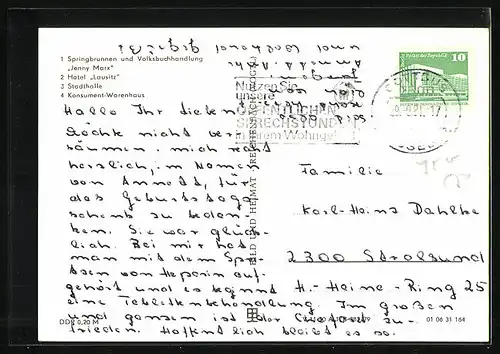 1 Springbrunnen und Volksbuchhandlung
„Jenny Marx"
2 Hotel „Lausitz"
3 Stadthalle
4 Konsument-Warenhaus
10
COTTBUS
Nutzen Sie
unsere
ÖFFENTLICHEN
SPRECHSTUNDEN
in Ihrem Wohngebiet
Hallo Ihr Lieben!
Möchte nicht ver-
säumen, mich recht
herzlich, im Namen
von Annett, für
das Geburtstags-
geschenk zu bedan-
ken. Sie war glück-
lich. Bei mir hat
man mit dem Sprit-
zen von Heparin auf-
gehört und es beginnt
eine Tablettenbehandlung. Im großen
und ganzen ist der Chefarzt zu-
frieden. Hoffentlich bleibt es so.
BILD UND HEIMAT REICHENBACH (VOGTL)
Familie
Karl-Heinz Dahlke
2300 Stralsund
H.-Heine-Ring 25
DDR 0,20 M
01 06 31 164